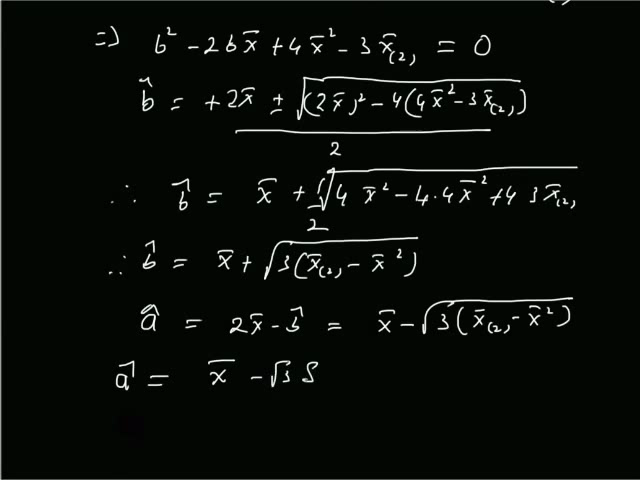 ⇒) b² − 2bx̄ + 4x̄² − 3x̄₍₂₎ = 0
b̂ = +2x̄ ± √((2x̄)² − 4(4x̄² − 3x̄₍₂₎)) / 2
∴ b̂ = x̄ + ½√(4x̄² − 4·4x̄² + 4 3x̄₍₂₎)
∴ b̂ = x̄ + √(3(x̄₍₂₎ − x̄²))
â = 2x̄ − b̂ = x̄ − √(3(x̄₍₂₎ − x̄²))
â = x̄ − √3 S